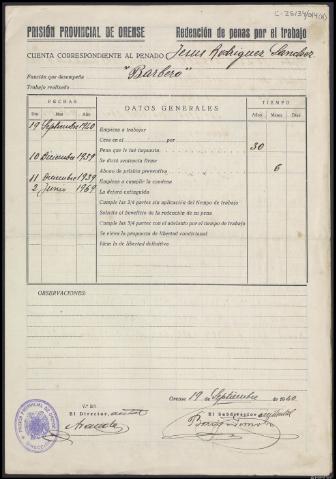 C-25134/014(6)
PRISIÓN PROVINCIAL DE ORENSE Redención de penas por el trabajo
CUENTA CORRESPONDIENTE AL PENADO Jesus Rodriguez Sanchez
Función que desempeña "Barbero"
Trabajo realizado
FECHAS DATOS GENERALES TIEMPO
Día Mes Año Años Meses Días
19 Septiembre 1940 Empieza a trabajar
Cesa en el por
Pena que le fué impuesta 30
10 Diciembre 1939 Se dictó sentencia firme
Abono de prisión preventiva 6
11 Diciembre 1939 Empieza a cumplir la condena
2 Junio 1969 La dejará extinguida
Cumple las 3/4 partes sin aplicación del tiempo de trabajo
Solicita el beneficio de la redención de su pena
Cumple las 3/4 partes con el adelanto por el tiempo de trabajo
Se eleva la propuesta de libertad condicional
Idem la de libertad definitiva
OBSERVACIONES:
Orense 19 de Septiembre de 1940
V.º B.º
El Director, El Subdirector accidental
PRISION PROVINCIAL DE ORENSE
DIRECCION